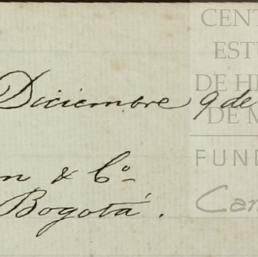 Diciembre 9 de
n & Co.
Bogotá.
CENT
EST
DE H
DE M
FUND
Car